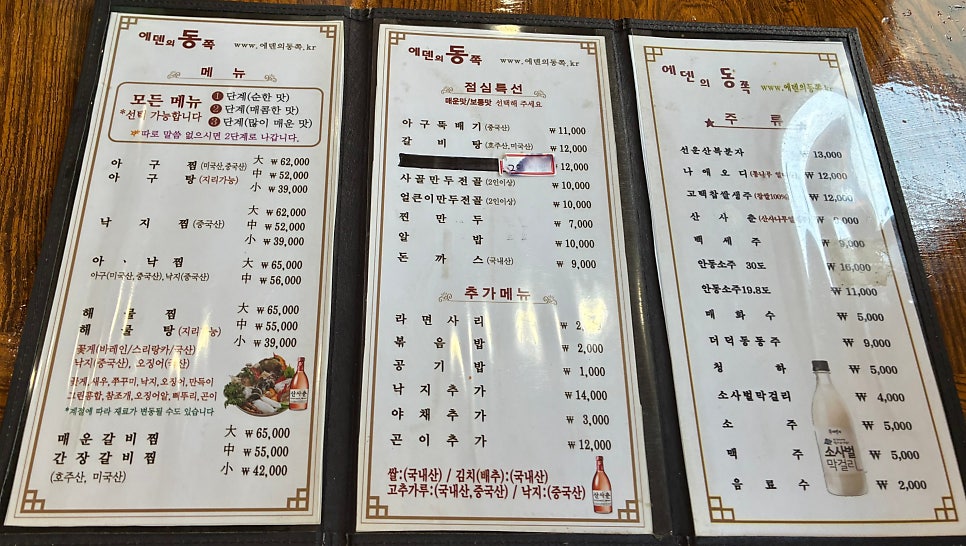 에덴의 동쪽 www.에덴의동쪽.kr
메뉴
모든 메뉴
*선택 가능합니다
1 단계(순한 맛)
2 단계(매콤한 맛)
3 단계(많이 매운 맛)
*따로 말씀 없으시면 2단계로 나갑니다.
아구찜 (미국산,중국산) 大 ₩ 62,000
아구탕 (지리가능) 中 ₩ 52,000
小 ₩ 39,000
大 ₩ 62,000
낙지찜 (중국산) 中 ₩ 52,000
小 ₩ 39,000
아.낙찜 大 ₩ 65,000
아구(미국산,중국산), 낙지(중국산) 中 ₩ 56,000
해물찜 大 ₩ 65,000
해물탕 (지리가능) 中 ₩ 55,000
小 ₩ 39,000
꽃게(바레인/스리랑카/국산)
낙지(중국산), 오징어(산)
꽃게,새우,쭈꾸미,낙지,오징어,만득이
그린홍합,참조개,오징어알,삐뚜리,곤이
*계절에 따라 재료가 변동될 수도 있습니다
매운갈비찜 大 ₩ 65,000
간장갈비찜 中 ₩ 55,000
(호주산, 미국산) 小 ₩ 42,000
에덴의 동쪽 www.에덴의동쪽.kr
점심특선
매운맛/보통맛 선택해 주세요
아구뚝배기 (중국산) ₩ 11,000
갈비탕 (호주산,미국산) ₩ 12,000
₩ 12,000
사골만두전골 (2인이상) ₩ 10,000
얼큰이만두전골 (2인이상) ₩ 10,000
찐만두 ₩ 7,000
알밥 ₩ 10,000
돈까스 (국내산) ₩ 9,000
추가메뉴
라면사리 ₩
볶음밥 ₩ 2,000
공기밥 ₩ 1,000
낙지추가 ₩ 14,000
야채추가 ₩ 3,000
곤이추가 ₩ 12,000
쌀:(국내산) / 김치(배추):(국내산)
고추가루:(국내산,중국산) / 낙지:(중국산)
산사춘
에덴의 동쪽 www.에덴의동쪽.kr
주류
선운산복분자 ₩ 13,000
나에오디 ₩ 12,000
고택찹쌀생주 (찹쌀100%) ₩ 12,000
산사춘 ₩
백세주 ₩ 9,000
안동소주 30도 ₩ 16,000
안동소주19.8도 ₩ 11,000
매화수 ₩ 5,000
더덕동동주 ₩ 9,000
청하 ₩ 5,000
소사벌막걸리 ₩ 4,000
소주 ₩ 5,000
맥주 ₩ 5,000
음료수 ₩ 2,000
소사벌
막걸리